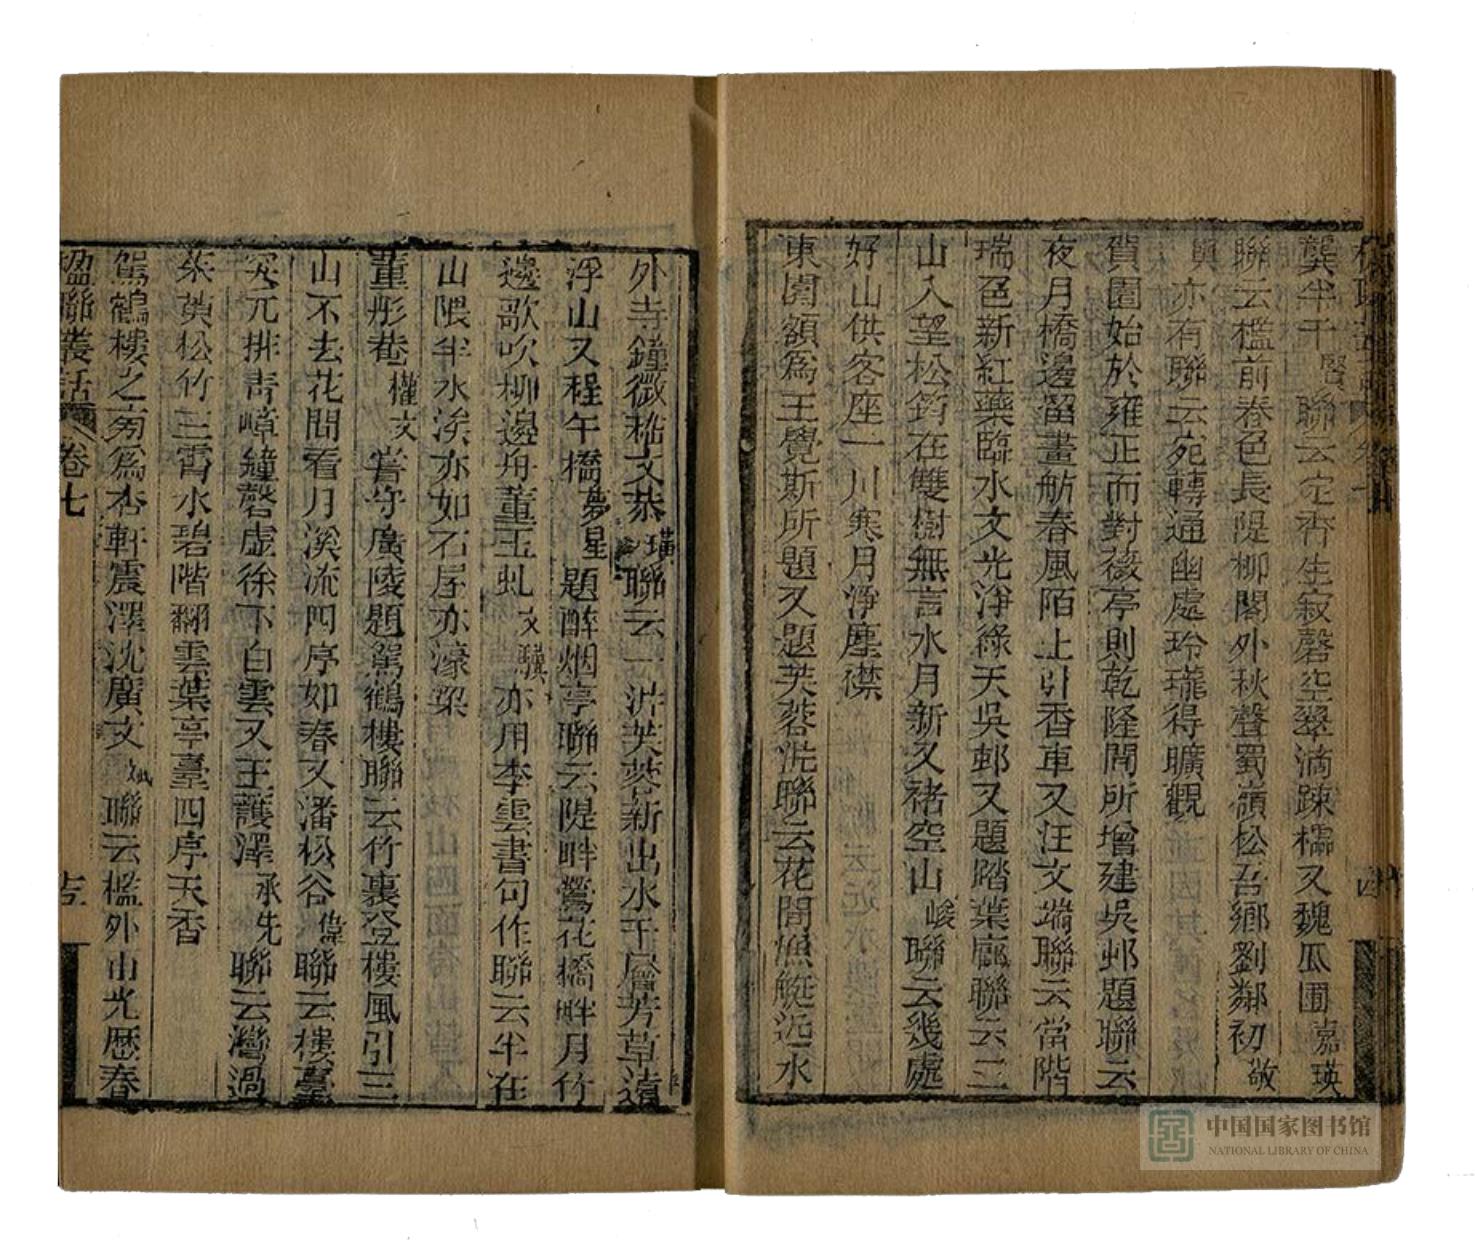 龔半千賢聯云定香生寂磬空翠滴踈櫺又魏瓜圃嘉瑛
聯云檻前春色長隄柳閣外秋聲蜀嶺松吾鄉劉鄰初敬
與亦有聯云宛轉通幽處玲瓏得曠觀
賀園始於雍正而對薇亭則乾隆間所增建吳邨題聯云
夜月橋邊留畫舫春風陌上引香車又汪文端聯云當階
瑞色新紅藥臨水文光淨綠天吳邨又題踏葉廊聯云二
山入望松筠在雙樹無言水月新又褚空山峻聯云幾處
好山供客座一川寒月淨塵襟
東園額爲王覺斯所題又題芙蓉沜聯云花間漁艇近水
外寺鐘微嵇文恭璜聯云一沜芙蓉新出水千層芳草遠
浮山又程午橋夢星題醉烟亭聯云隄畔鶯花橋畔月竹
邊歌吹柳邊舟董玉虬文驥亦用李雲書句作聯云半在
山隈半水涘亦如石屋亦濠梁
董彤菴權文嘗守廣陵題駕鶴樓聯云竹裏登樓風引三
山不去花間看月溪流四序如春又潘松谷偉聯云樓臺
突兀排青嶂鐘磬虛徐下白雲又王護澤承先聯云灣過
茱萸松竹三霄水碧階翻雲葉亭臺四序天香
駕鶴樓之南爲杏軒震澤沈廣文斌聯云檻外山光歷春
楹聯叢話 卷七